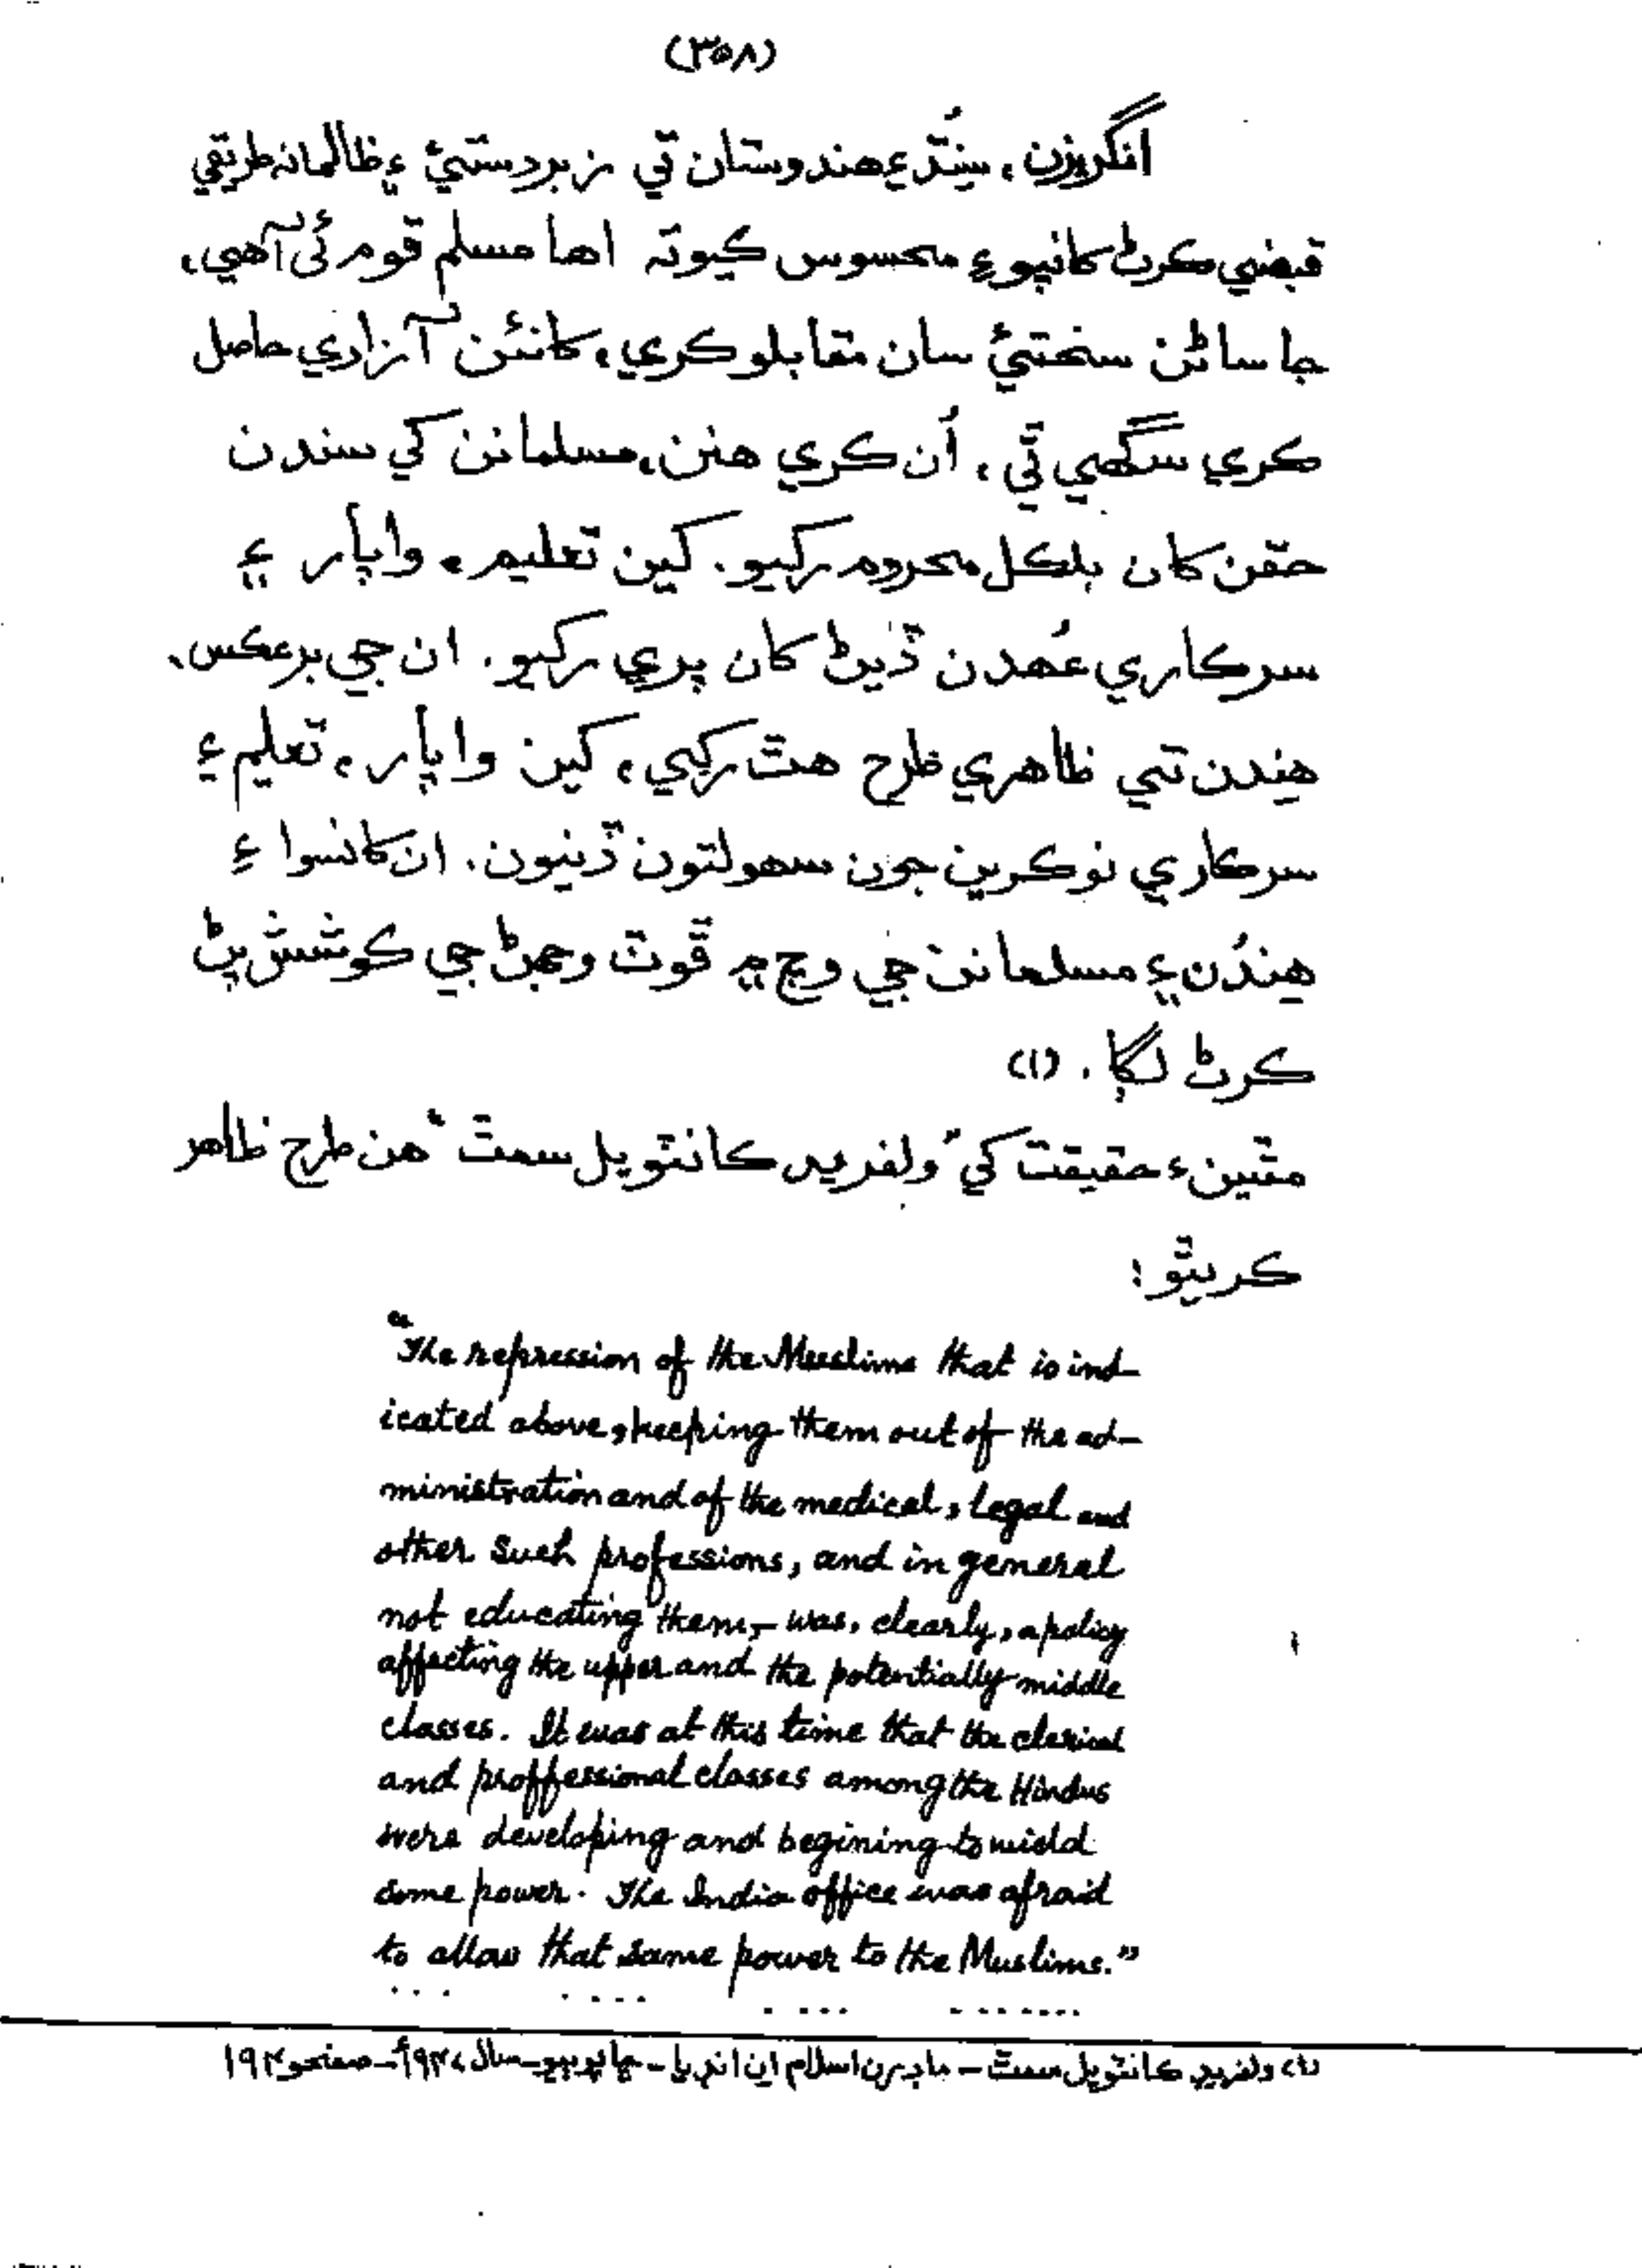 (٣٥٨)
انگريزن، سنڌ ۽ هندوستان تي زبردستيءَ ۽ ظالمانه طريقي
قبضي ڪرڻ کانپوءِ محسوس ڪيو ته اها مسلم قوم ئي آهي،
جا ساڻن سختيءَ سان مقابلو ڪري، کانئن آزادي حاصل
ڪري سگهي ٿي، اُن ڪري هنن، مسلمانن کي سندن
حقن کان بلڪل محروم رکيو. کين تعليم، واپار ۽
سرڪاري عُهدن ڏيڻ کان پري رکيو. ان جي برعڪس،
هندن تي ظاهري طرح هٿ رکي، کين واپار، تعليم ۽
سرڪاري نوڪرين جون سهولتون ڏنيون. ان کانسواءِ
هندُن ۽ مسلمانن جي وچ ۾ ڦوٽ وجهڻ جي ڪوشش پڻ
ڪرڻ لڳا. (١)
مٿين ءَ حقيقت کي "ولفريڊ ڪانٽويل سمٿ" هن طرح ظاهر
ڪريٿو:
"The repression of the Muslims that is ind-
icated above, keeping them out of the ad-
ministration and of the medical, legal and
other such professions, and in general
not educating them,- was, clearly, a policy
affecting the upper and the potentially middle
classes. It was at this time that the clerical
and proffessional classes among the Hindus
were developing and begining to wield
some power. The India office was afraid
to allow that same power to the Muslims."
.... .... .... .......
(١) ولفريڊ ڪانٽويل سمٿ - ماڊرن اسلام ان انڊيا - ڇاپو ٻيو - سال - صفحو ١٩٢